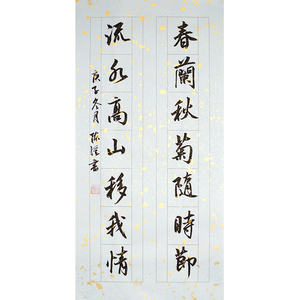 春蘭秋菊隨時節
流水高山移我情
庚子冬月
書